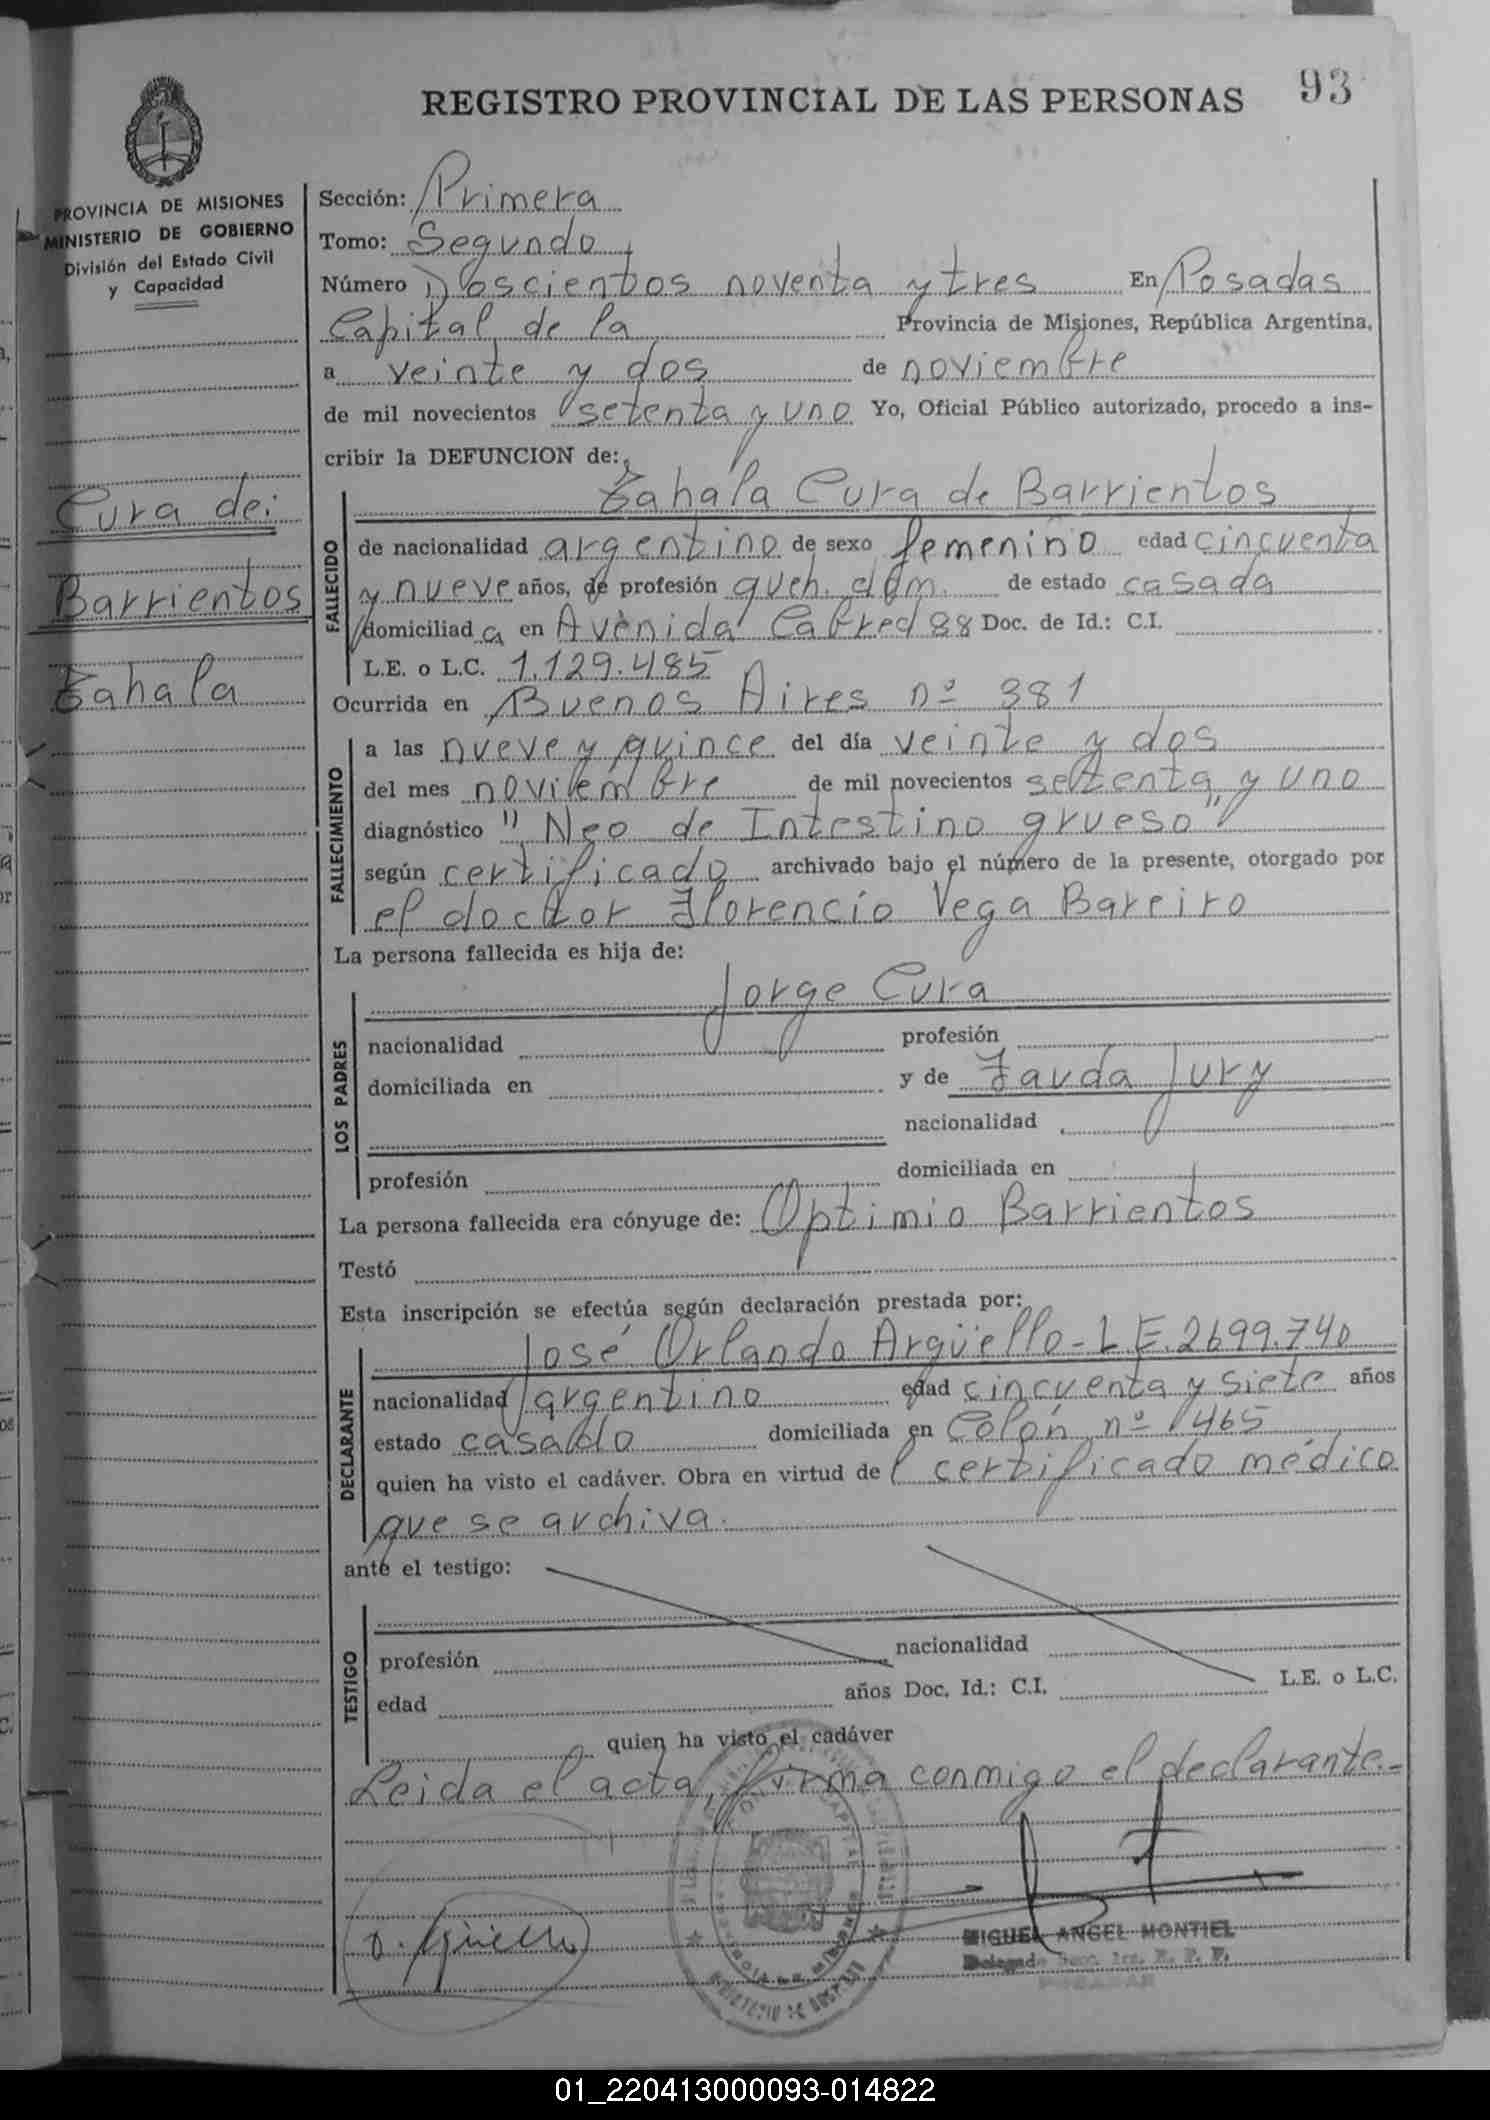 93
REGISTRO PROVINCIAL DE LAS PERSONAS
PROVINCIA DE MISIONES
MINISTERIO DE GOBIERNO
División del Estado Civil
y Capacidad
Cura de:
Barrientos
Zahala
Sección: Primera
Tomo: Segundo
Número Doscientos noventa y tres En Posadas
Capital de la Provincia de Misiones, República Argentina,
a veinte y dos de noviembre
de mil novecientos setenta y uno Yo, Oficial Público autorizado, procedo a ins-
cribir la DEFUNCION de:
Zahala Cura de Barrientos
FALLECIDO
de nacionalidad argentino de sexo femenino edad cincuenta
y nueve años, de profesión queh. dom. de estado casada
domiciliada en Avenida Cabred 88 Doc. de Id.: C.I.
L.E. o L.C. 1.129.485
Ocurrida en Buenos Aires nº 381
FALLECIMIENTO
a las nueve y quince del día veinte y dos
del mes noviembre de mil novecientos setenta y uno
diagnóstico "Neo de Intestino grueso"
según certificado archivado bajo el número de la presente, otorgado por
el doctor Florencio Vega Bareiro
La persona fallecida es hija de:
Jorge Cura
LOS PADRES
nacionalidad profesión
domiciliada en y de Zauda Jury
nacionalidad
profesión domiciliada en
La persona fallecida era cónyuge de: Optimio Barrientos
Testó
Esta inscripción se efectúa según declaración prestada por:
José Orlando Argüello - L.E. 2699.740
DECLARANTE
nacionalidad argentino edad cincuenta y siete años
estado casado domiciliada en Colón nº 1465
quien ha visto el cadáver. Obra en virtud de certificado médico
que se archiva.
ante el testigo:
TESTIGO
profesión nacionalidad
edad años Doc. Id.: C.I. L.E. o L.C.
quien ha visto el cadáver
Leida el acta, firma conmigo el declarante.-
MIGUEL ANGEL MONTIEL
01_220413000093-014822